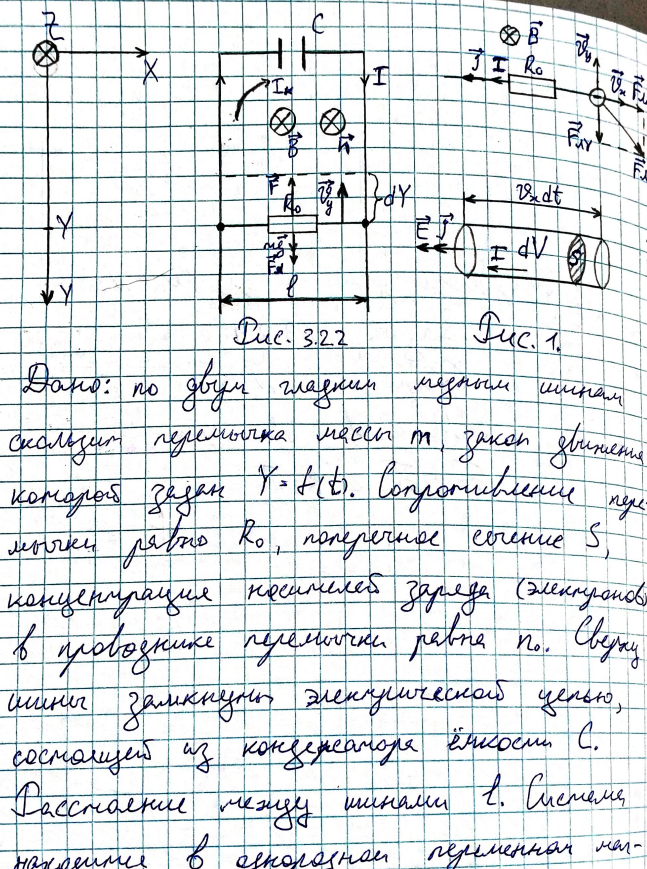 Z
X
Y
Y
C
I
Iк
B
n
F
R₀
Vy
dY
Fд
l
Рис. 3.22
B
Vy
j I R₀
Vx
Fлy
Vxdt
E j
I dV S
Рис. 1.
Дано: по двум гладким медным шинам
скользит перемычка массы m, закон движения
которой задан Y=f(t). Сопротивление пере-
мычки равно R₀, поперечное сечение S,
концентрация носителей заряда (электронов
в проводнике перемычки равна n₀. Сверху
шины замкнуты электрической цепью,
состоящей из конденсатора ёмкости C.
Расстояние между шинами l. Система
находится в однородном переменном маг-